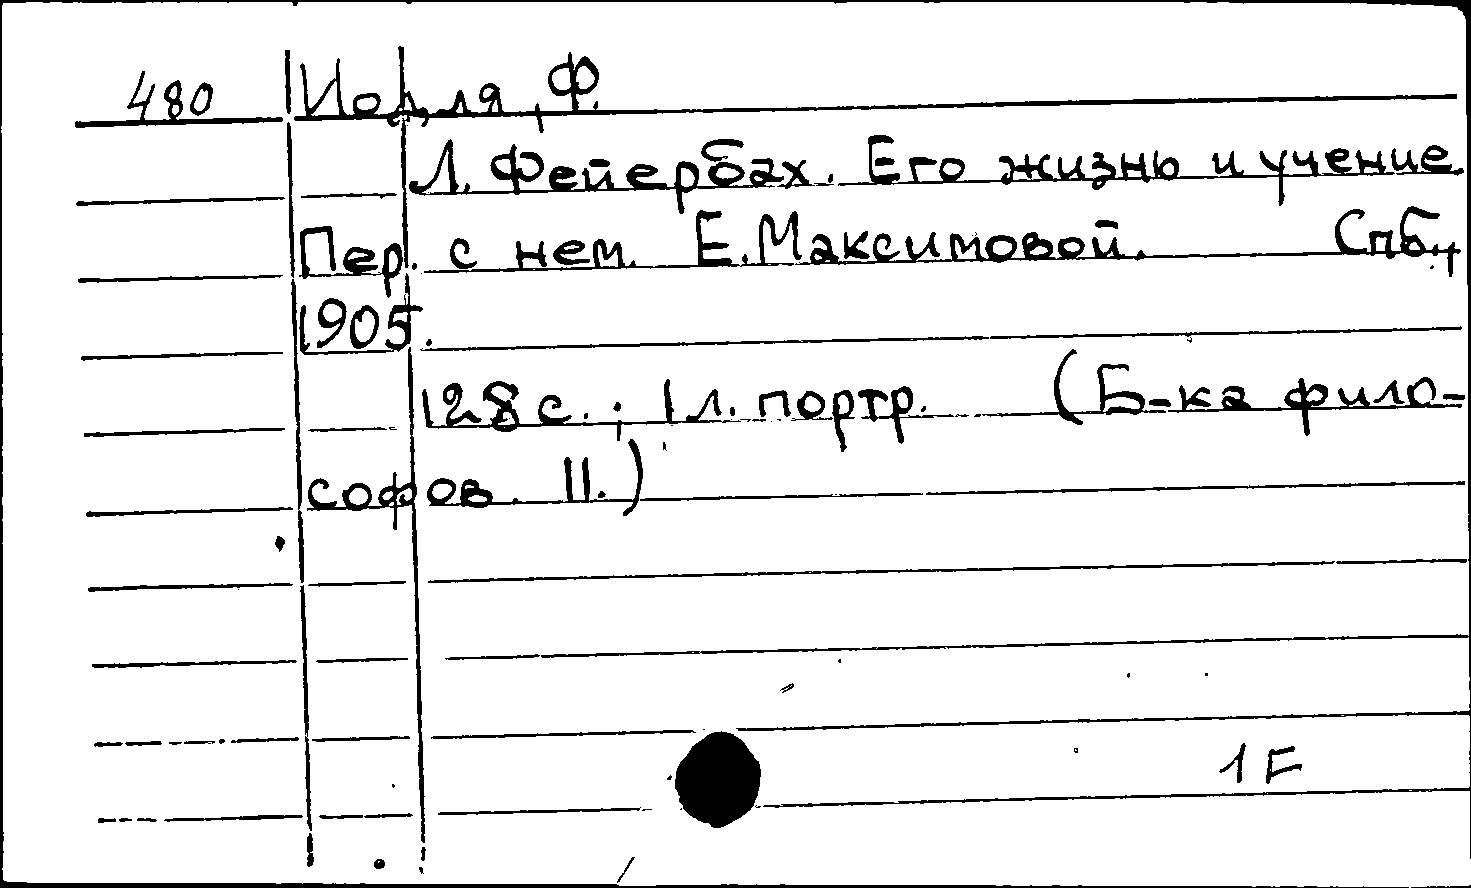 480 Иодля, Ф.
Л. Фейербах. Его жизнь и учение.
Пер. с нем. Е. Максимовой. Спб.,
1905.
128 с.; 1 л. портр. (Б-ка фило-
софов. II.)
1 Б